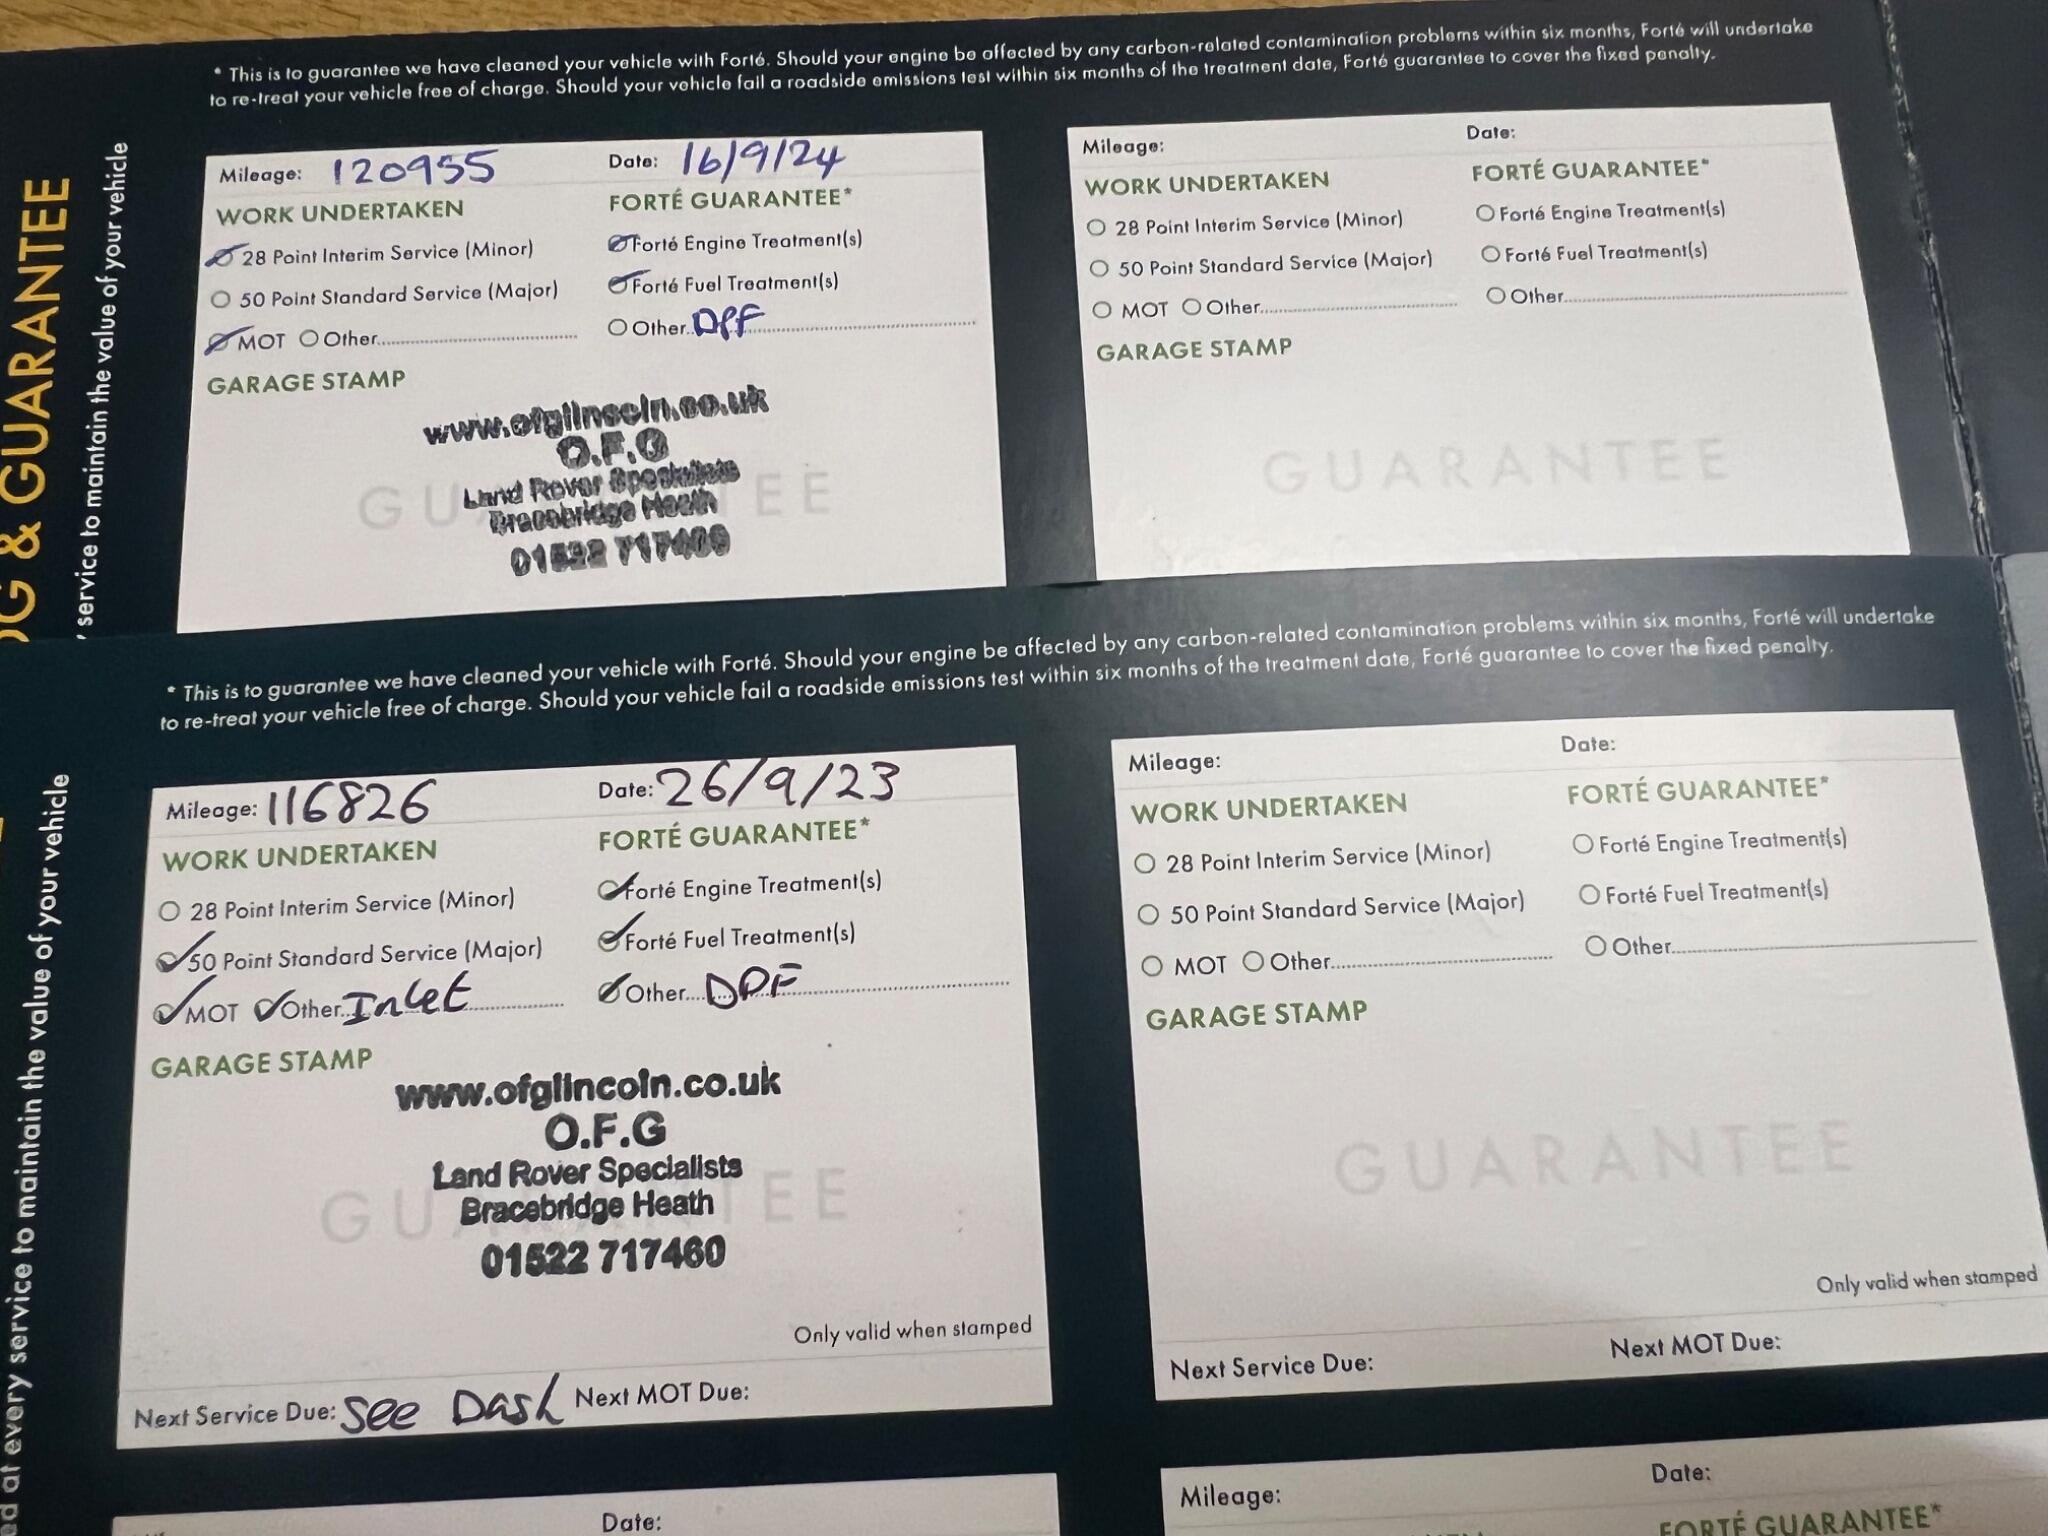 * This is to guarantee we have cleaned your vehicle with Forté. Should your engine be affected by any carbon-related contamination problems within six months, Forté will undertake
to re-treat your vehicle free of charge. Should your vehicle fail a roadside emissions test within six months of the treatment date, Forté guarantee to cover the fixed penalty.
& GUARANTEE
service to maintain the value of your vehicle
Mileage: 120955 Date: 16/9/24
WORK UNDERTAKEN FORTÉ GUARANTEE*
28 Point Interim Service (Minor) Forté Engine Treatment(s)
50 Point Standard Service (Major) Forté Fuel Treatment(s)
MOT Other Other DPF
GARAGE STAMP
www.ofglincoln.co.uk
O.F.G
Land Rover Specialists
Bracebridge Heath
01522 717460
GUARANTEE
Mileage: Date:
WORK UNDERTAKEN FORTÉ GUARANTEE*
28 Point Interim Service (Minor) Forté Engine Treatment(s)
50 Point Standard Service (Major) Forté Fuel Treatment(s)
MOT Other Other
GARAGE STAMP
GUARANTEE
* This is to guarantee we have cleaned your vehicle with Forté. Should your engine be affected by any carbon-related contamination problems within six months, Forté will undertake
to re-treat your vehicle free of charge. Should your vehicle fail a roadside emissions test within six months of the treatment date, Forté guarantee to cover the fixed penalty.
ed at every service to maintain the value of your vehicle
Mileage: 116826 Date: 26/9/23
WORK UNDERTAKEN FORTÉ GUARANTEE*
28 Point Interim Service (Minor) Forté Engine Treatment(s)
50 Point Standard Service (Major) Forté Fuel Treatment(s)
MOT Other Inlet Other DPF
GARAGE STAMP
www.ofglincoln.co.uk
O.F.G
Land Rover Specialists
Bracebridge Heath
01522 717460
GUARANTEE
Only valid when stamped
Next Service Due: See Dash Next MOT Due:
Mileage: Date:
WORK UNDERTAKEN FORTÉ GUARANTEE*
28 Point Interim Service (Minor) Forté Engine Treatment(s)
50 Point Standard Service (Major) Forté Fuel Treatment(s)
MOT Other Other
GARAGE STAMP
GUARANTEE
Only valid when stamped
Next Service Due: Next MOT Due:
Date:
Mileage: Date:
FORTÉ GUARANTEE*